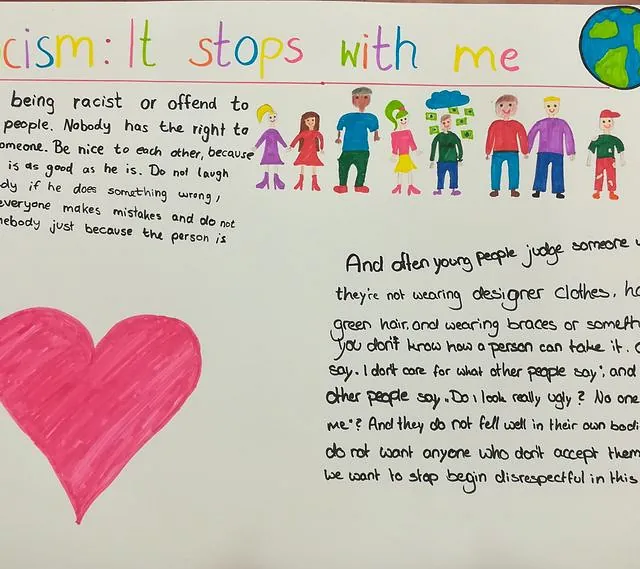 cism: It stops with me
being racist or offend to
people. Nobody has the right to
omeone. Be nice to each other, because
is as good as he is. Do not laugh
dy if he does something wrong,
everyone makes mistakes and do not
mebody just because the person is
And often young people judge someone
they're not wearing designer clothes, ha
green hair, and wearing braces or someth
you don't know how a person can take it.
say. I don't care for what other people say", and
other people say „Do I look really ugly? No one
me"? And they do not fell well in their own bodi
do not want anyone who don't accept them
we want to stop begin disrespectful in this